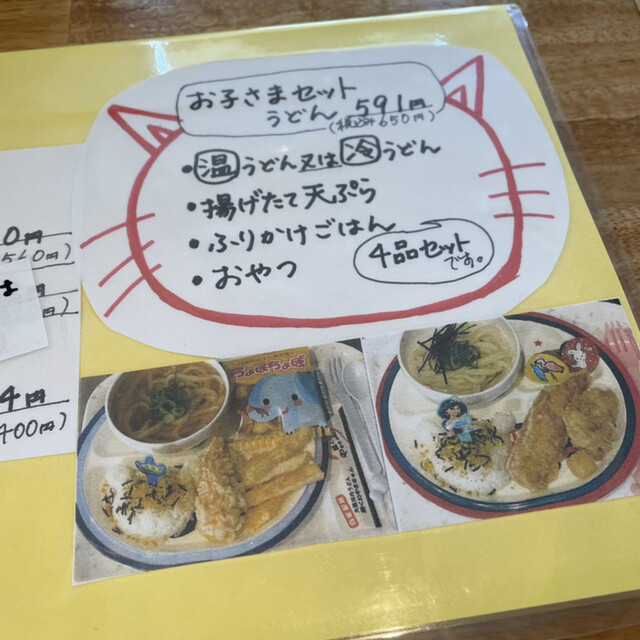 お子さまセット
うどん 591円
(税込み650円)
・温うどん又は冷うどん
・揚げたて天ぷら
・ふりかけごはん
・おやつ
4品セット
です。
0円
560円)
円
)
4円
400円)